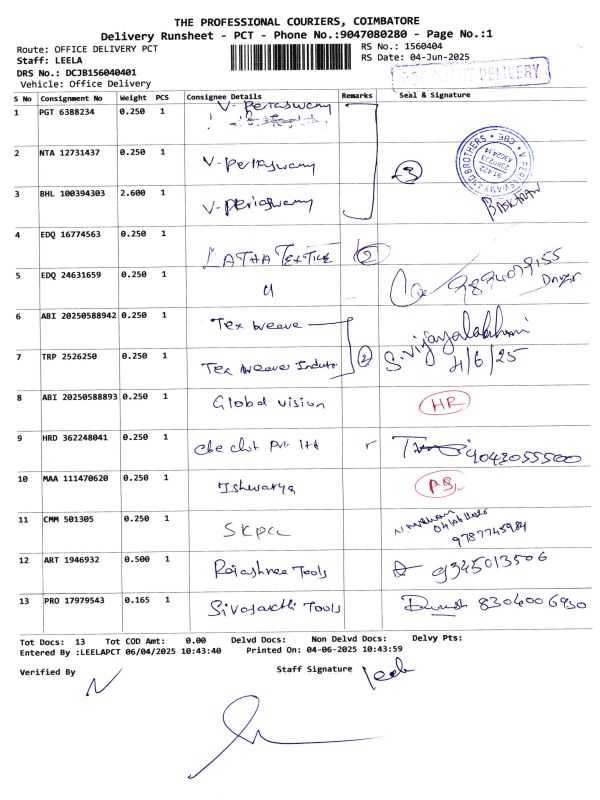 THE PROFESSIONAL COURIERS, COIMBATORE
Delivery Runsheet - PCT - Phone No.:9047080280 - Page No.:1
Route: OFFICE DELIVERY PCT RS No.: 1560404
Staff: LEELA RS Date: 04-Jun-2025
DRS No.: DCJB156040401
Vehicle: Office Delivery DELIVERY
S No Consignment No Weight PCS Consignee Details Remarks Seal & Signature
1 PGT 6388234 0.250 1 V. Periaswamy
2 NTA 12731437 0.250 1 V. Periyaswamy 3
3 BHL 100394303 2.600 1 V. Periaswamy
V. PERIYASWAMY AND BROTHERS * CBE *
4 EDQ 16774563 0.250 1 LATHA TEXTILE 2
5 EDQ 24631659 0.250 1 "
6 ABI 20250588942 0.250 1 Tex weave S. Vijayalakshmi
7 TRP 2526250 0.250 1 Tex weave 2 4/6/25
8 ABI 20250588893 0.250 1 Global vision HR
9 HRD 362248041 0.250 1 Cbe clot Pvt ltd 9042055500
10 MAA 111470620 0.250 1 Ishwarya
11 CMM 501305 0.250 1 SKPCC
9787745984
12 ART 1946932 0.500 1 Rajashree Tools 9345013506
13 PRO 17979543 0.165 1 Sivasakthi Tools 8304006930
Tot Docs: 13 Tot COD Amt: 0.00 Delvd Docs: Non Delvd Docs: Delvy Pts:
Entered By :LEELAPCT 06/04/2025 10:43:40 Printed On: 04-06-2025 10:43:59
Verified By Staff Signature Leela